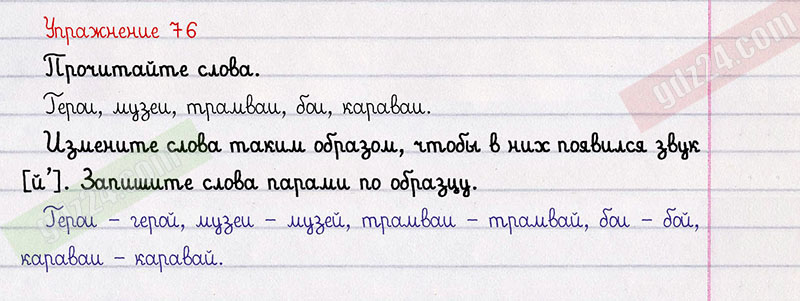 Упражнение 76
Прочитайте слова.
Герои, музеи, трамваи, бои, караваи.
Измените слова таким образом, чтобы в них появился звук
[й’]. Запишите слова парами по образцу.
Герои – герой, музеи – музей, трамваи – трамвай, бои – бой,
караваи – каравай.
gdz24.com
gdz24.com